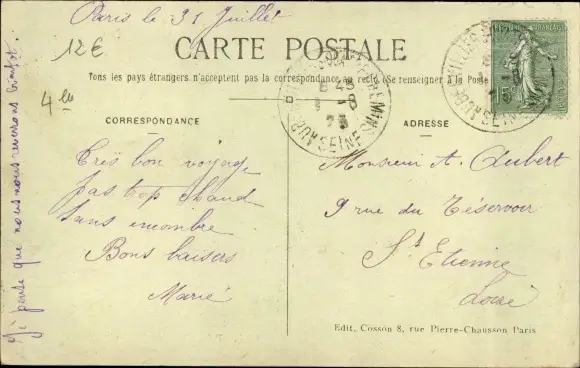 Paris le 31 Juillet
12€
CARTE POSTALE
Tous les pays étrangers n'acceptent pas la correspondance au recto. (Se renseigner à la Poste
4
CORRESPONDANCE
ADRESSE
Très bon voyage,
pas trop chaud
Sans encombre
Bons baisers
Marie
J'pense que nous nous reverrons bientôt.
Monsieur A. Aubert
9 rue du Réservoir
St Etienne
Loire
Edit. Cosson 8, rue Pierre-Chausson Paris
8 45
1 - 8
AUBERVILLIERS
SEINE
15